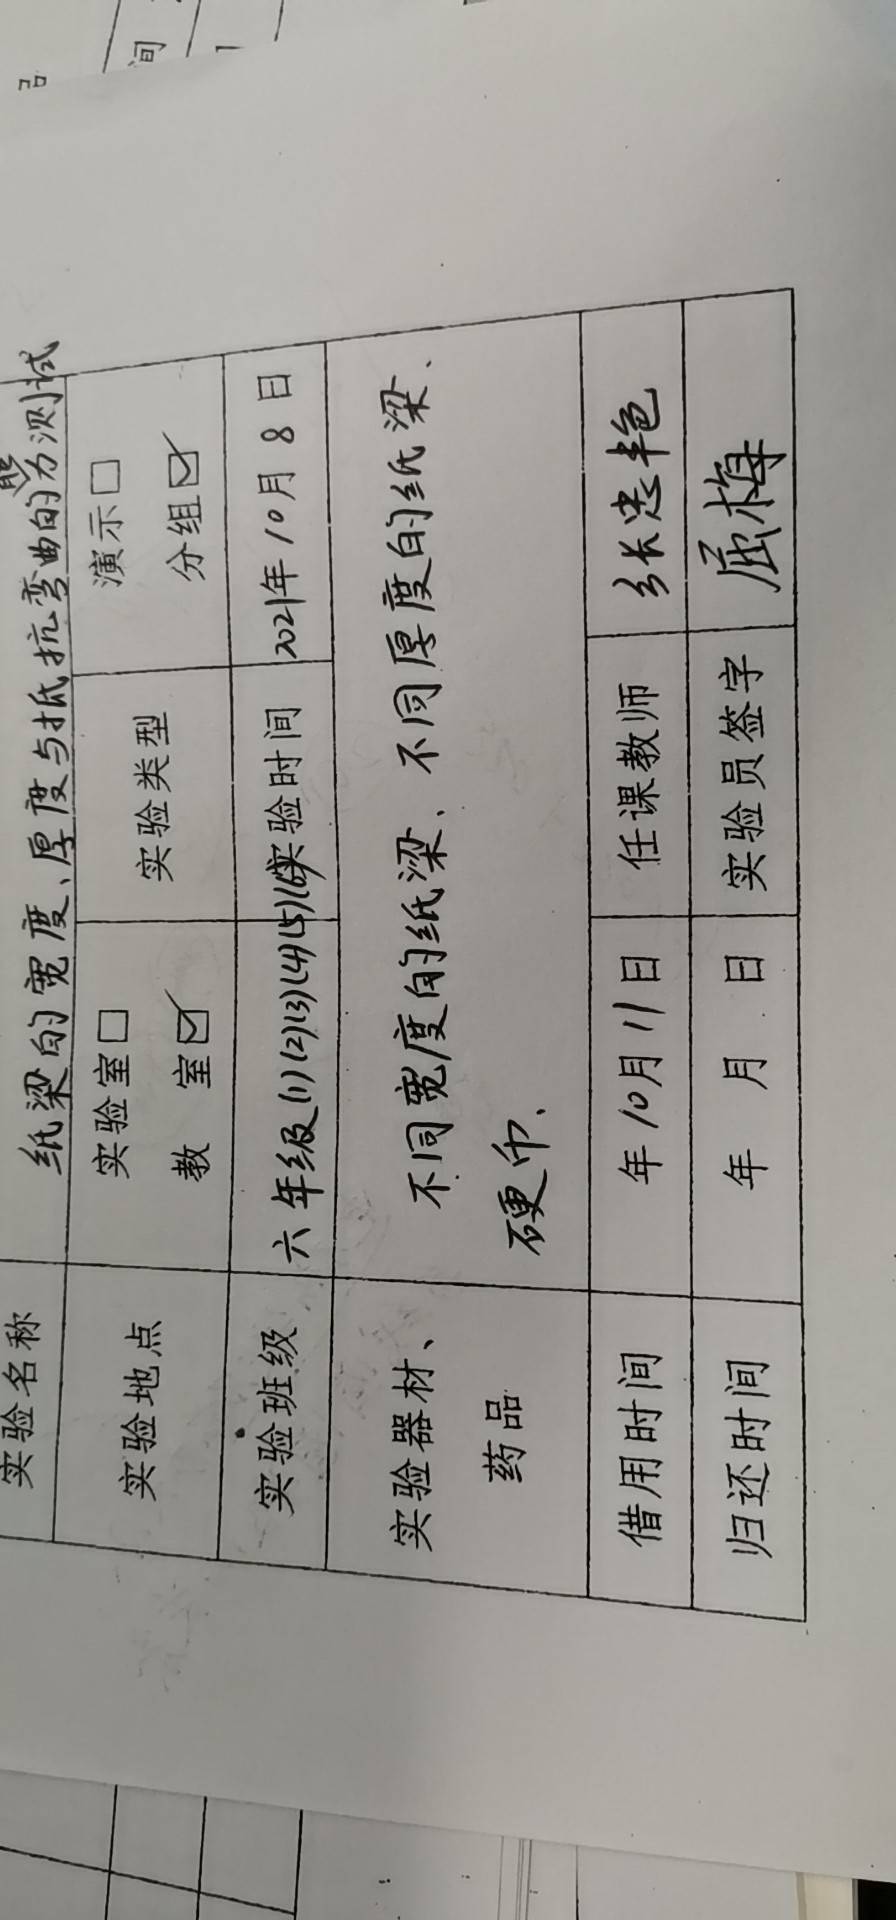 实验名称 纸梁的宽度、厚度与抵抗弯曲的能力测试
实验地点 实验室☐ 实验类型 演示☐
教 室☑ 分组☑
实验班级 六年级(1)(2)(3)(4)(5)(6) 实验时间 2021年10月8日
实验器材、 不同宽度的纸梁、不同厚度的纸梁、
药品 硬币、
借用时间 年10月11日 任课教师 张忠艳
归还时间 年 月 日 实验员签字 屈梅
品
间